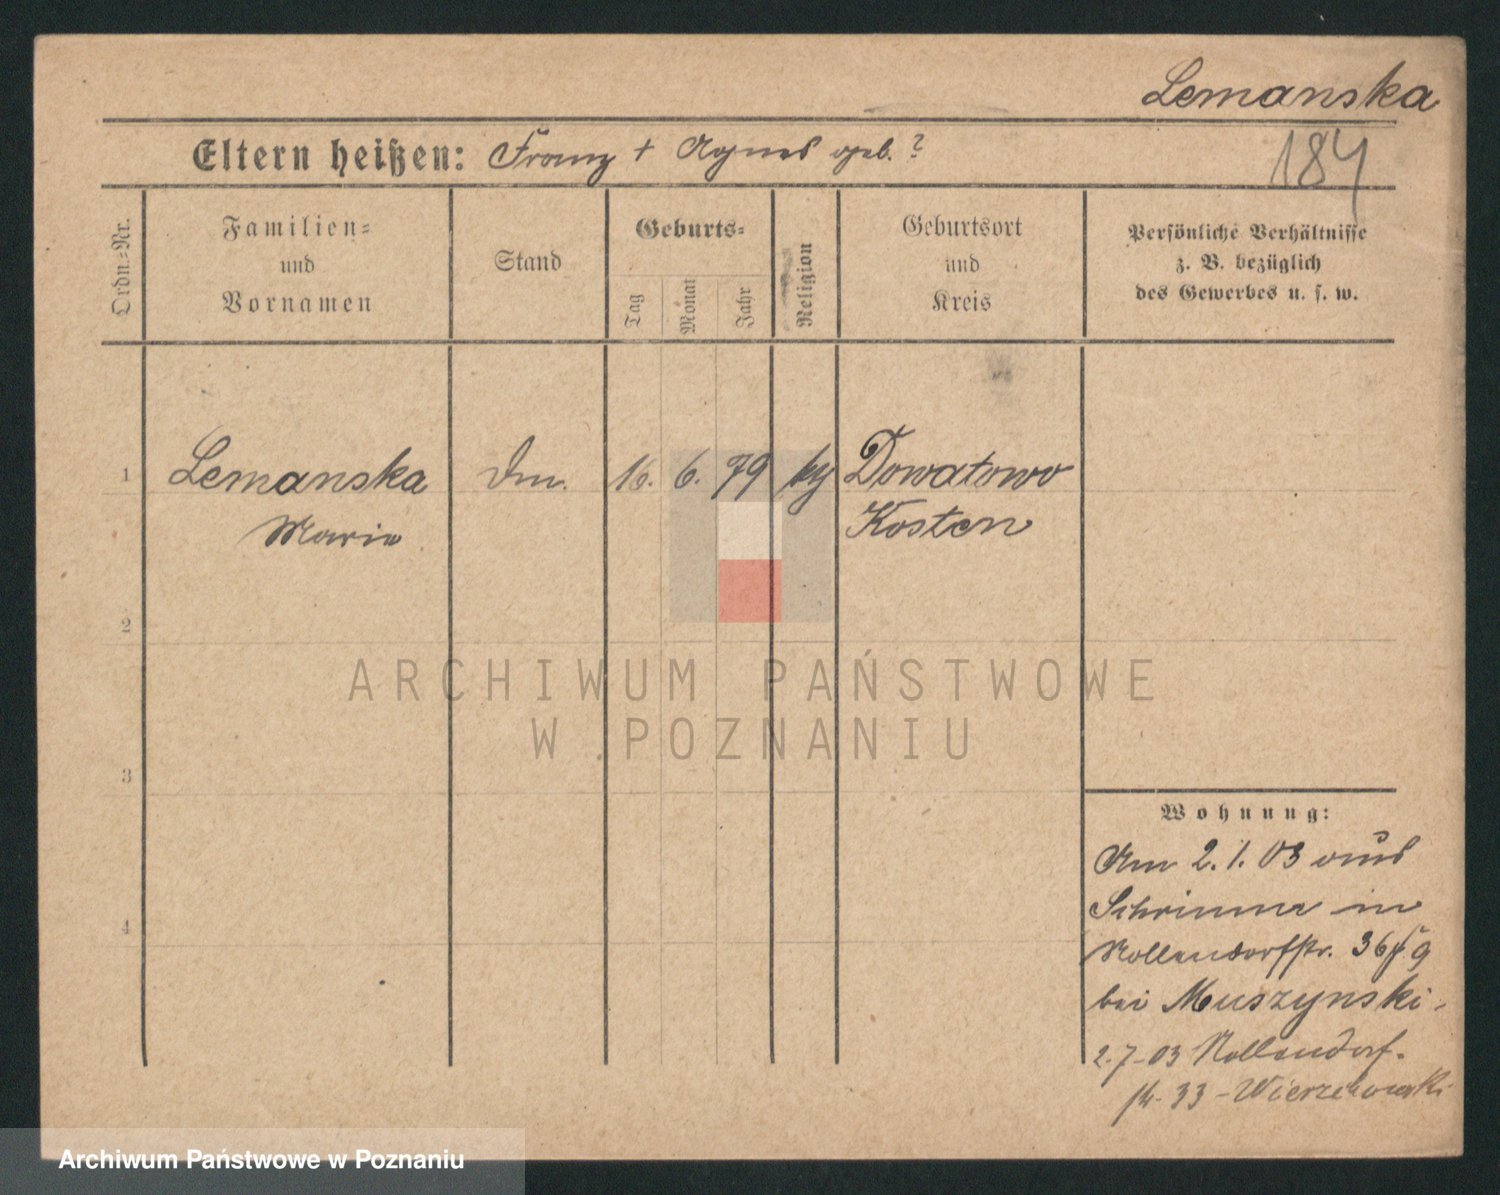 Lemanska
184
Eltern heißen: Franz + Agnes geb. ?
Ordn.-Nr.
Familien-
und
Vornamen
Stand
Geburts-
Tag
Monat
Jahr
Religion
Geburtsort
und
Kreis
Persönliche Verhältnisse
z. B. bezüglich
des Gewerbes u. s. w.
1 Lemanska 16. 6. 79 Dowatowo
Marie Kosten
2
3
4
ARCHIWUM PAŃSTWOWE
W POZNANIU
Wohnung:
Am 2. 1. 03 aus
Schrimm in
Nollendorfstr. 36
bei Muszynski
2.7.03 Nollendorf-
33
Archiwum Państwowe w Poznaniu